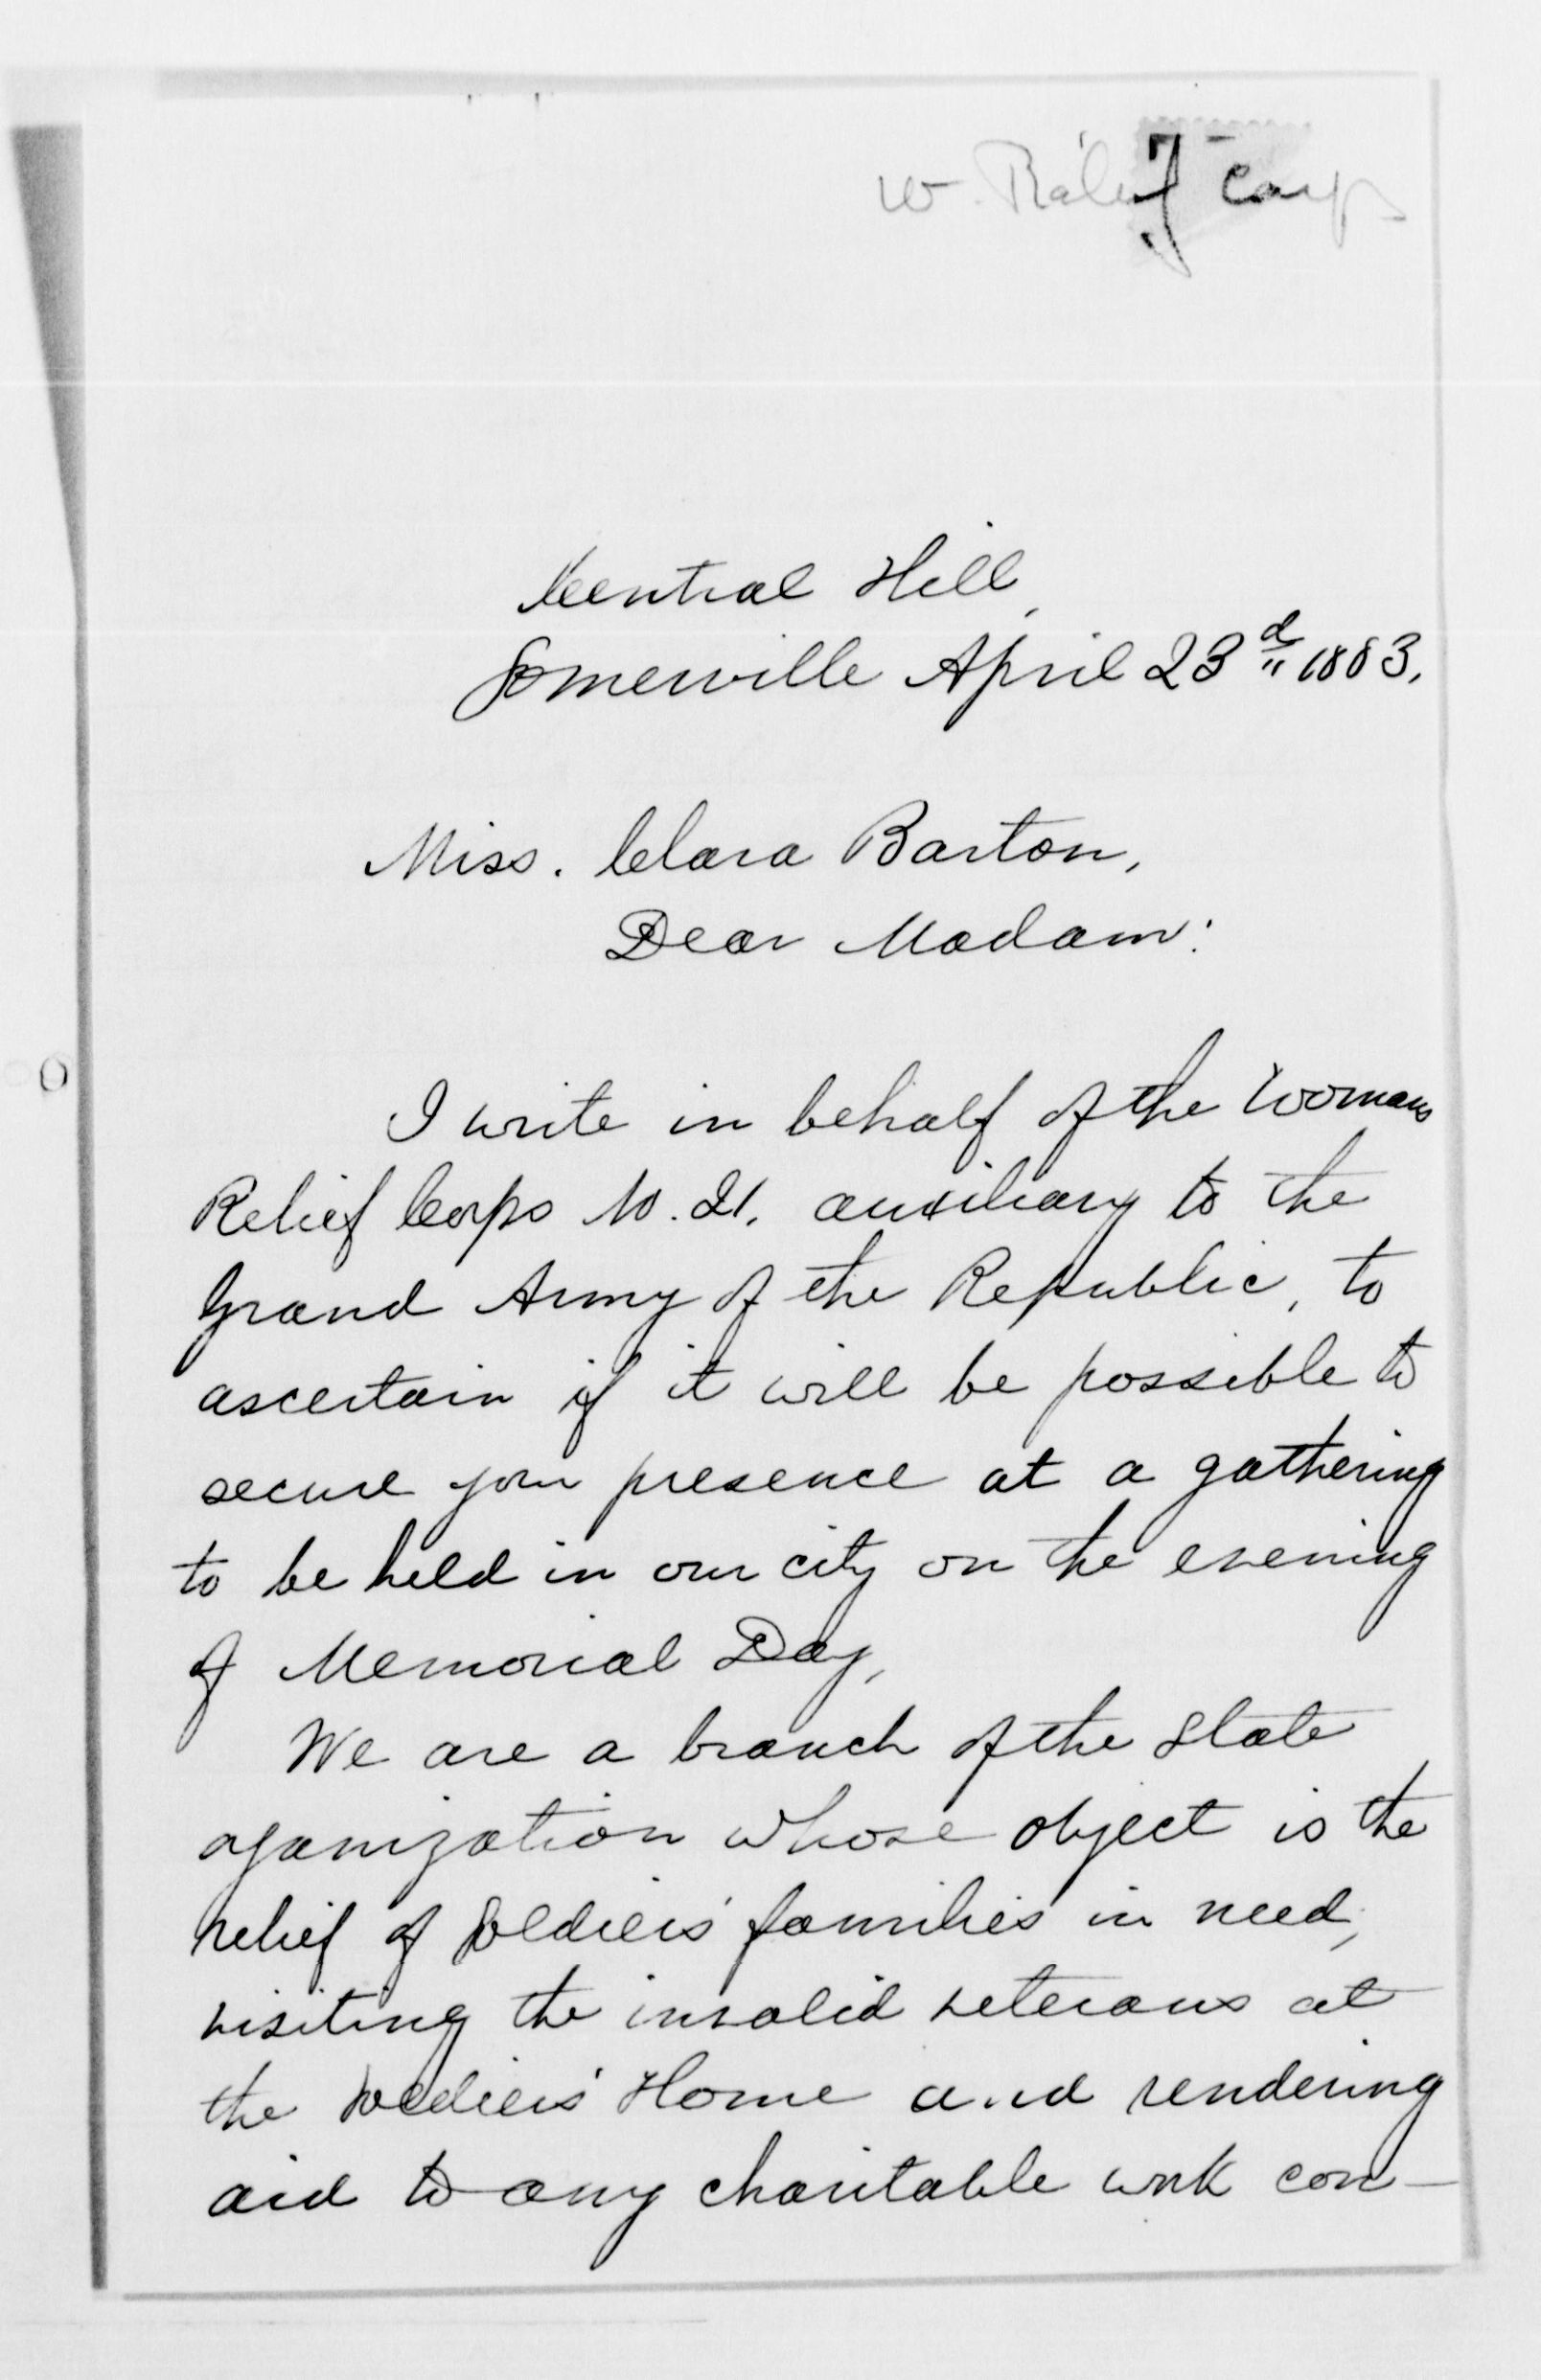 W. Relief Corps
Central Hill,
Somerville April 23d 1883.
Miss. Clara Barton,
Dear Madam:
I write in behalf of the Womans
Relief Corps No. 21. auxiliary to the
Grand Army of the Republic, to
ascertain if it will be possible to
secure your presence at a gathering
to be held in our city on the evening
of Memorial Day,
We are a branch of the State
organization whose object is the
relief of Soldiers' families in need,
visiting the invalid veterans at
the Soldiers' Home and rendering
aid to any charitable work con-